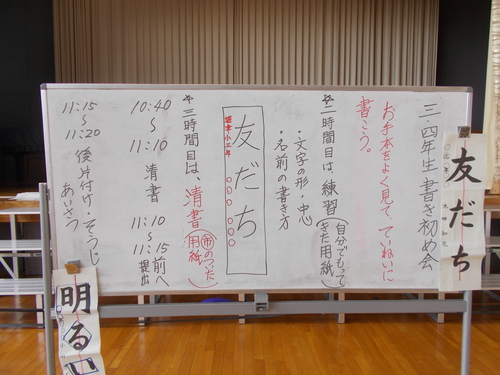 三・四年生 書き初め会
お手本をよく見て、ていねいに
書こう。
☆二時間目は、練習(自分でもってきた用紙)
・文字の形・中心
・名前の書き方
友だち
☆三時間目は、清書(市のついた用紙)
10:40
～
11:10
清書
11:10
～
11:15
前へ
提出
11:15
～
11:20
後片付け・そうじ
あいさつ
友だち
明るい